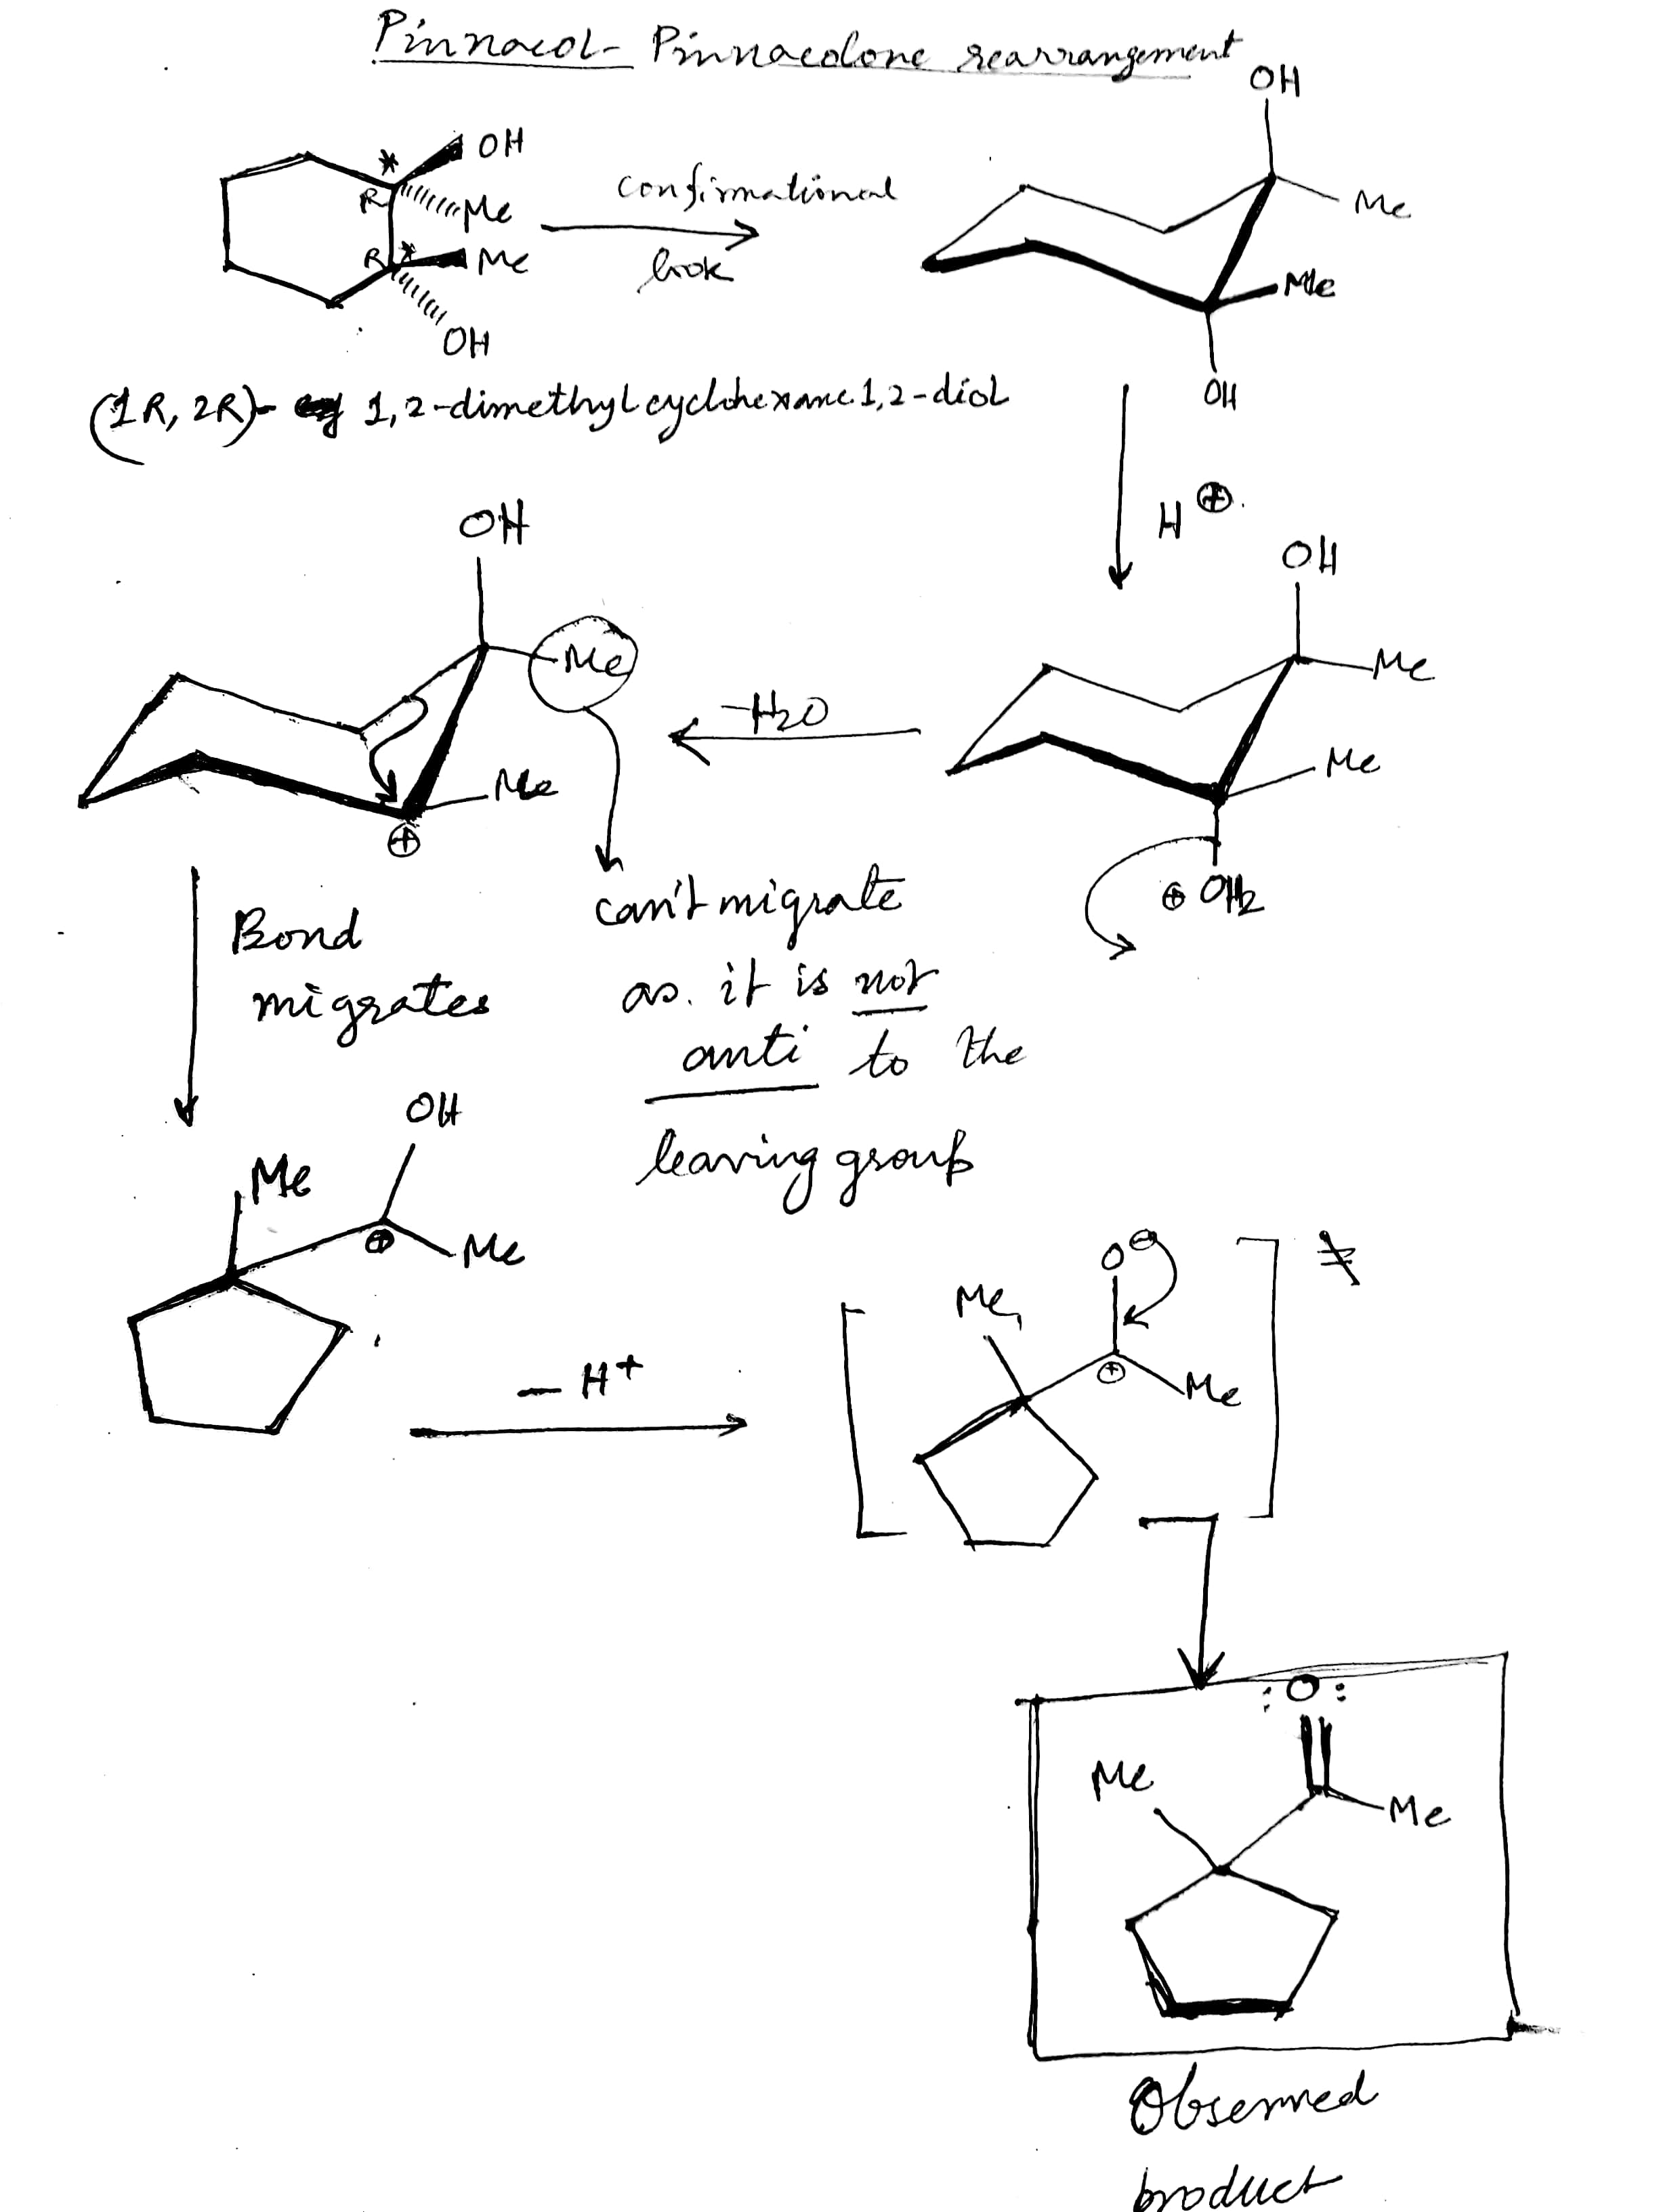 Pinnacol- Pinnacolone rearrangement
OH
* OH
R Me
R * Me
OH
confirmational
look
OH
Me
Me
OH
(1R, 2R)- 1,2-dimethylcyclohexane.1,2-diol
H ⊕
OH
Me
Me
⊕
-H2O
OH
Me
Me
⊕ OH2
Bond
migrates
can't migrate
as. it is not
anti to the
leaving group
OH
Me
⊕
Me
- H+
O⊖
Me
⊕
Me
≠
:O:
Me
Me
Observed
product